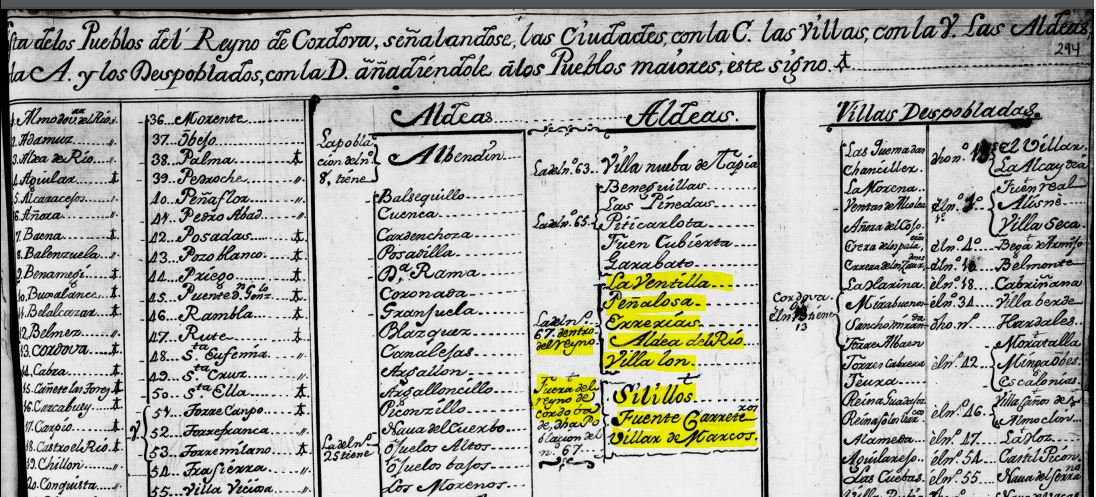 sta delos Pueblos del Reyno de Cordova, señalandose, las Ciudades, con la C. las Villas, con la V. Las Aldeas,
la A. y los Despoblados, con la D. añadiéndole álos Pueblos maiores, este signo. ‡
294
1. Almodov.ar del Río
2. Adamuz
3. Aldea del Río
4. Aguilar ‡
5. Alcaracejos
6. Añora
7. Baena ‡
8. Balenzuela
9. Benamegi ‡
10. Buxalance ‡
11. Belalcazar ‡
12. Belmez
13. Cordova ‡
14. Cabra ‡
15. Cañete las Torres ‡
16. Carcabuey ‡
17. Carpio ‡
18. Castro el Río ‡
19. Chillon
20. Conquista
36. Morente
37. Obejo
38. Palma ‡
39. Pedroche ‡
40. Peñaflor ‡
41. Pedro Abad
42. Posadas ‡
43. Pozoblanco ‡
44. Priego ‡
45. Puente D. Gonz.lo ‡
46. Rambla ‡
47. Rute ‡
48. S.ta Eufemia
49. S.ta Cruz
50. S.ta Ella ‡
51. Torre Campo ‡
52. Torrefranca
53. Torremilano ‡
54. Trasierra
55. Villa Viciosa
Aldeas
La pobla
cion del nº
8, tiene
Albendin
Balsequillo
Cuenca
Cardenchoza
Posadilla
D.ª Rama
Coronada
Granjuela
Blazquez
Canalejas
Argallon
Argalloncillo
Piconzillo
Nava del Cuerbo
Ojuelos Altos
Ojuelos bajos
Los Morenos
La del nº
25 tiene
Aldeas.
La del nº. 63
Villa nueba de Tapia
La del nº. 65
Beneguillas
Las Pinedas
Piticarlota
Fuen Cubierta
Garabato
La del nº.
67. dentro
del reyno
La Ventilla
Peñalosa
Errerias
Aldea del Río
Villa lon
Fuera del
reyno de
Cordoba
de, dha Po
blacion del
nº. 67.
Silillos
Fuente Carrete
ros
Villar de Marcos.
Villas Despobladas.
Cordova
él nº tiene
13
Las Quemadas
Chanciller
La Morena
La Harina
Mirabuenos
Torre Albaen
Torres Cabrera
Teura
Alameda
Aguilarejo
Las Cuebas
dho nº.
él nº. 4º
él nº. 18
él nº. 34
dho nº.
él nº. 42
él nº. 46
él nº. 47
él nº. 54
él nº. 55
El Villar
La Alcaydia
Fuen real
Villa Seca
Belmonte
Cabriñana
Villa berde
Hardales
Moratalla
Mingañes
Escalonias
Almoclon